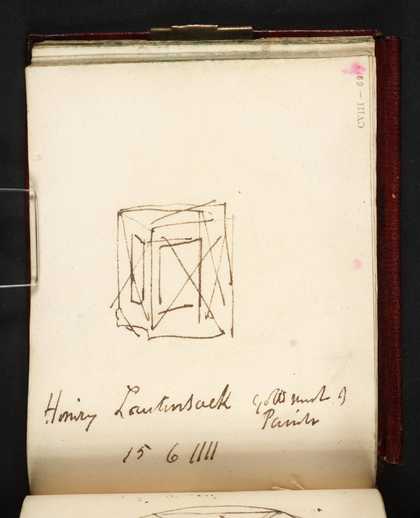 CVIII – 69
Henry Lautensack Goldsmith &
Painter
15 6 1111